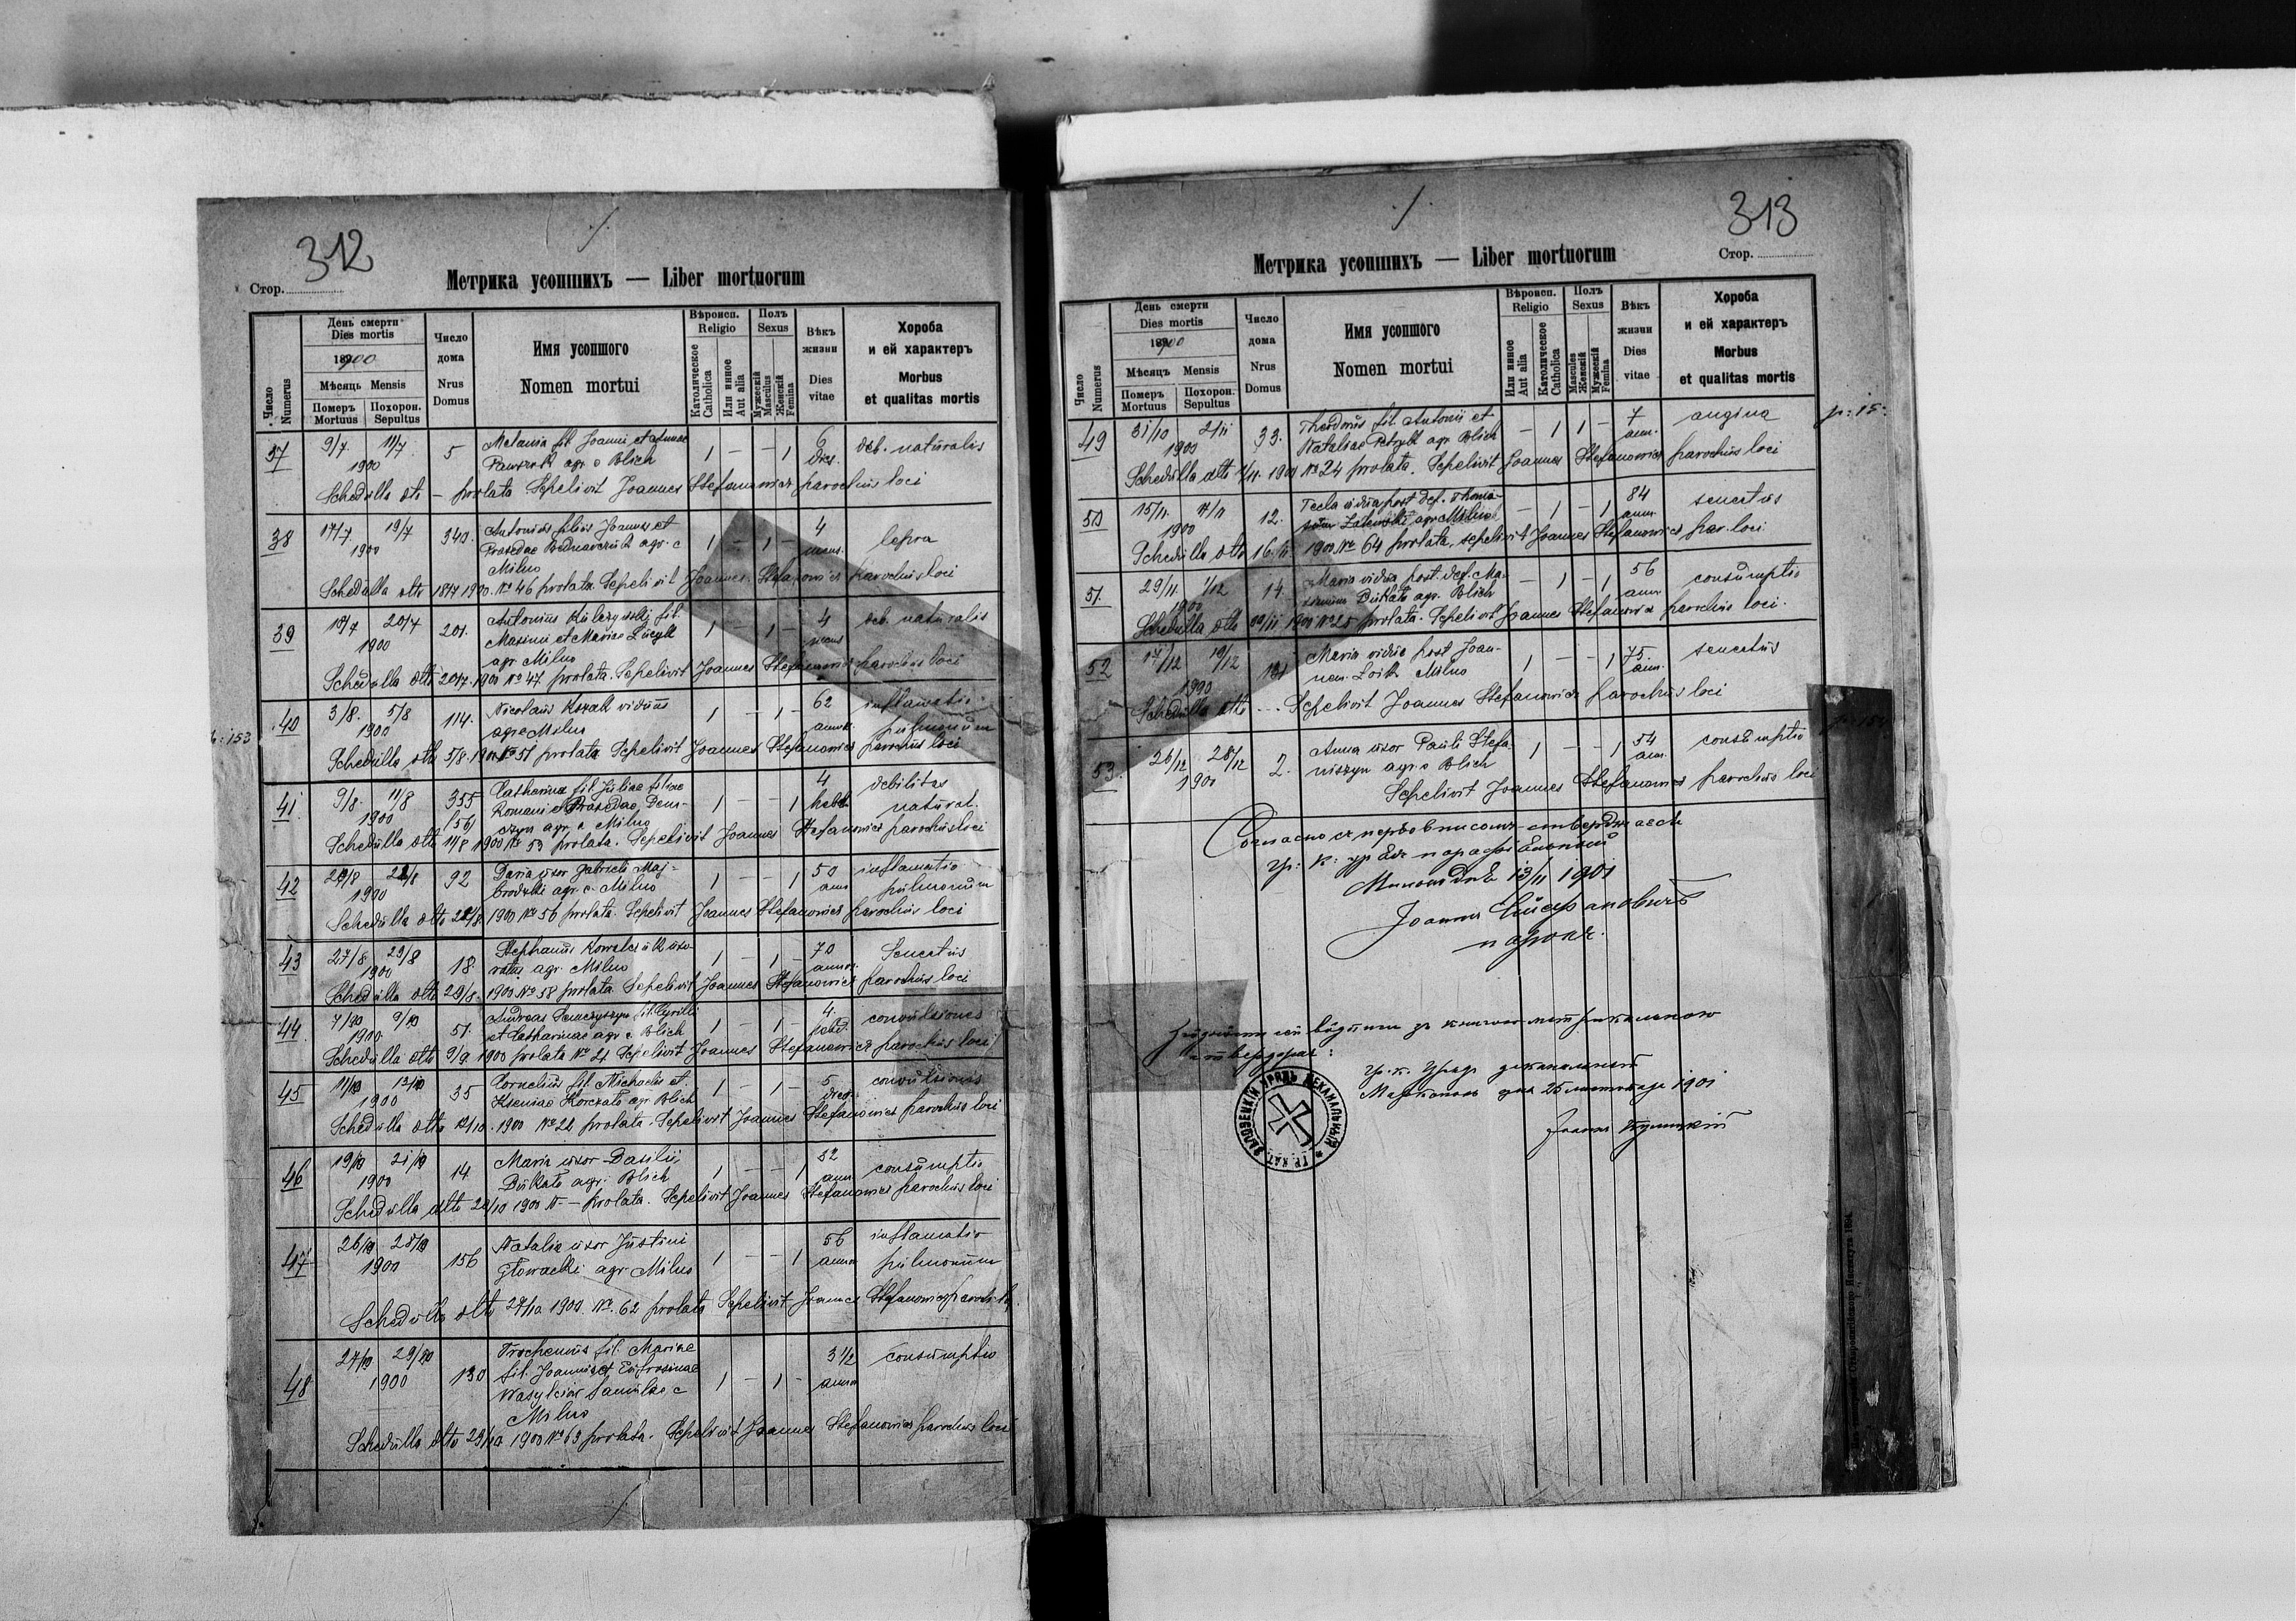 312
Стор.
Метрика усопшихъ — Liber mortuorum
Число
Numerus
День смерти
Dies mortis
1900
Мѣсяць Mensis
Померъ
Mortuus
Похорон.
Sepultus
Число
дома
Nrus
Domus
Имя усопшого
Nomen mortui
Вѣроисп.
Religio
Католическое
Catholica
Или инное
Aut alia
Полъ
Sexus
Мужескій
Masculus
Женскій
Femina
Вѣкъ
жизни
Dies
vitae
Хороба
и ей характеръ
Morbus
et qualitas mortis
37 9/7 11/7 1900 5 Melania fil. Joanni et Annae 1 — — 1 6 dies. deb. naturalis
agr. c Blich
Schedulla dto — prolata Sepelivit Joannes Stefanowicz parochus loci
38 17/7 19/7 1900 340. Antonius filius Joannes et 1 — 1 — 4 mens. lepra
Praxedae Bednarczuk agr. c
Milno
Schedulla dto 18/7 1900. No 46 prolata. Sepelivit Joannes Stefanowicz parochus loci
39 18/7 20/7 1900 201. Antonius fil. 1 — 1 — 4 mens deb. naturalis
Maximi et Mariae
agr. Milno
Schedulla dto 20/7 1900 No 47 prolata. Sepelivit Joannes Stefanowicz parochus loci
p: 153
40 3/8. 5/8 1900 114. Nicolaus Kszak viduus 1 — 1 — 62 annor. inflamatio
agr. c Milno pulmonum
Schedulla dto 5/8. 1900 No 51 prolata Sepelivit Joannes Stefanowicz parochus loci
41 9/8. 11/8 1900 355 (56) Catharina fil. Juliae filiae 1 — — 1 4 hebd. debilitas
Romani et Praxedae natural.
agr. c Milno
Schedulla dto 11/8 1900 No 53 prolata. Sepelivit Joannes Stefanowicz parochus loci
42 1900 92 Daria uxor Gabrieli Maj- 1 — — 1 50 ann inflamatio
brodzki agr. c. Milno pulmonum
Schedulla dto 1900 No 56 prolata. Sepelivit Joannes Stefanowicz parochus loci
43 27/8 29/8 1900 18. Stephanus Kowalczuk uxo- 1 — 1 — 70 annor. Senectus
ratus agr. Milno
Schedulla dto 29/8. 1900 No 58 prolata. Sepelivit Joannes Stefanowicz parochus loci
44 1900 51. Andreas fil. Cyrilli 1 — 1 — 4. hebd. convulsiones
et Catharinae agr. c. Blich
Schedulla dto 9/9 1900 prolata No 21 Sepelivit Joannes Stefanowicz parochus loci
45 11/10 13/10 1900 35 Cornelius fil. Michaelis et 1 — 1 — 5 dies. convulsionis
Kseniae Korczato agr. Blich
Schedulla dto 12/10. 1900 No 22 prolata. Sepelivit Joannes Stefanowicz parochus loci
46 19/10 21/10 1900 14 Maria uxor Basilii 1 — — 1 52 ann. consumptio
Dukato agr. Blich
Schedulla dto 20/10 1900 N — prolata. Sepelivit Joannes Stefanowicz parochus loci
47 26/10 28/10 1900 156 Natalia uxor Justini 1 — — 1 56 annor inflamatio
Głowacki agr. Milno pulmonum
Schedulla dto 27/10 1900. No. 62 prolata Sepelivit Joannes Stefanowicz
48 27/10 29/10 1900 130 Trochemus fil. Mariae 1 — 1 — 3 1/2 annor consumptio
fil. Joannis et Eufrosinae
Wasylciow famulae c
Milno
Schedulla dto 29/10 1900 No 63 prolata. Sepelivit Joannes Stefanowicz parochus loci
313
Стор.
Метрика усопшихъ — Liber mortuorum
Число
Numerus
День смерти
Dies mortis
1900
Мѣсяць Mensis
Померъ
Mortuus
Похорон.
Sepultus
Число
дома
Nrus
Domus
Имя усопшого
Nomen mortui
Вѣроисп.
Religio
Или инное
Aut alia
Католическое
Catholica
Полъ
Sexus
Masculus
Женскій
Мужескій
Femina
Вѣкъ
жизни
Dies
vitae
Хороба
и ей характеръ
Morbus
et qualitas mortis
49 31/10 2/11 1900 33. Theodorus fil. Antonii et — 1 1 — 7 ann. angina p: 15
Nataliae Petryk agr. Blich
Schedulla dto 1/11. 1900 No 24 prolata. Sepelivit Joannes Stefanowicz parochus loci
50 15/11. 17/11 1900 12. Tecla vidua post def. Thoma- — 1 — 1 84 ann. senectus
agr. Milno
Schedulla dto 16/11. 1900 No 64 prolata, sepelivit Joannes Stefanowicz par. loci
51. 29/11. 1/12 1900 14. Maria vidua post. def. Ma- — 1 — 1 56 ann consumptio
Dukato agr. Blich
Schedulla dto 30/11 1900 No 25 prolata. Sepelivit Joannes Stefanowicz parochus loci.
52 17/12 19/12 1900 Maria vidua post Joan- 1 — — 1 75 ann. senectus
nem Milno
Schedulla dto — Sepelivit Joannes Stefanowicz parochus loci
53. 26/12 28/12 1900 2. Anna uxor Pauli Stefa- 1 — — 1 54 ann. consumptio
niszyn agr. c Blich
Sepelivit Joannes Stefanowicz parochus loci
Согласно съ первовписомъ
13/II 1901
Іоаннъ Стефановичъ
парохъ.
дня 25 1901